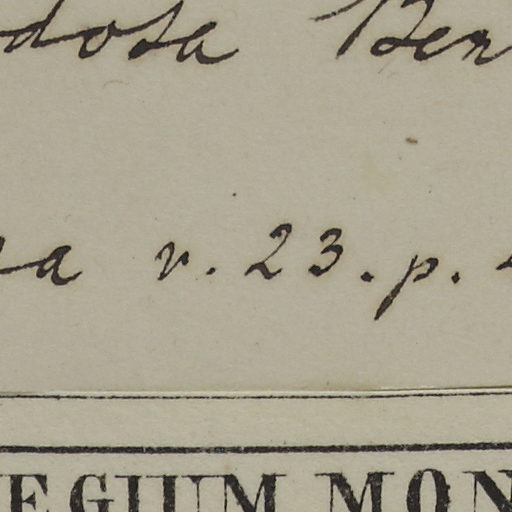 dosa Ben
na v. 23. p.
EGIUM MON